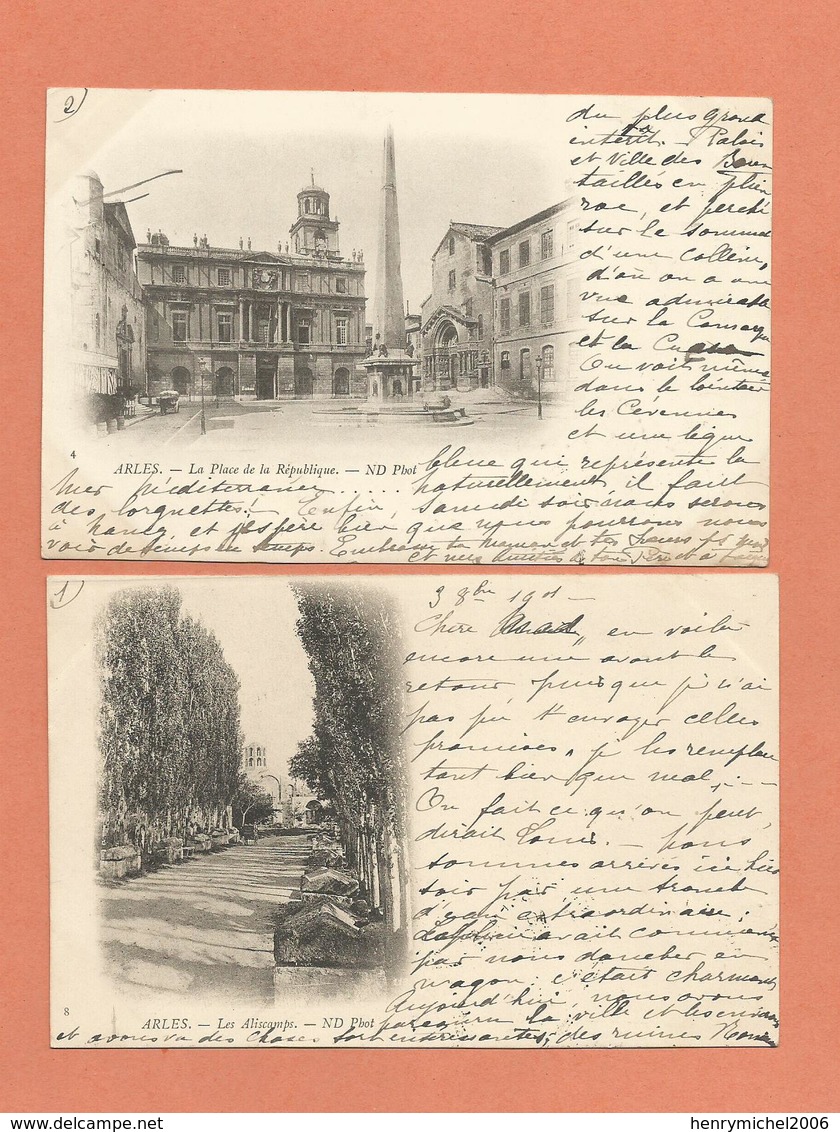 2)
du plus grand
intérêt. Palais
et Ville des Baux
taillés en plein
roc, et perché
sur le sommet
d'une colline,
d'où on a une
vue admirable
sur la Camargue
et la Crau
On voit même
dans le lointain
les Cévennes
et une ligne
4
ARLES. — La Place de la République. — ND Phot
bleue qui représente la
Mer Méditerranée ..... naturellement il faut
des lorgnettes! Enfin, Samedi soir nous serons
à Nancy, et j'espère bien que nous pourrons nous
voir de temps en temps. Embrasse ta maman et tes
et mes amitiés à ton Père et à
1)
3 8bre 1901 -
Chère en voilà
encore une avant le
retour, puisque je n'ai
pas pu t'envoyer celles
promises, je les remplace
tant bien que mal
On fait ce qu'on peut,
dirait Louis. - Nous
sommes arrivés ici hier
soir par une trombe
d'eau extraordinaire;
avait commencé
par nous doucher en
wagon: c'était charmant
Aujourd'hui, nous avons
8
ARLES. — Les Aliscamps. — ND Phot
parcouru la ville et les environs
et avons vu des choses fort intéressantes, des ruines
delcampe.net
henrymichel2006